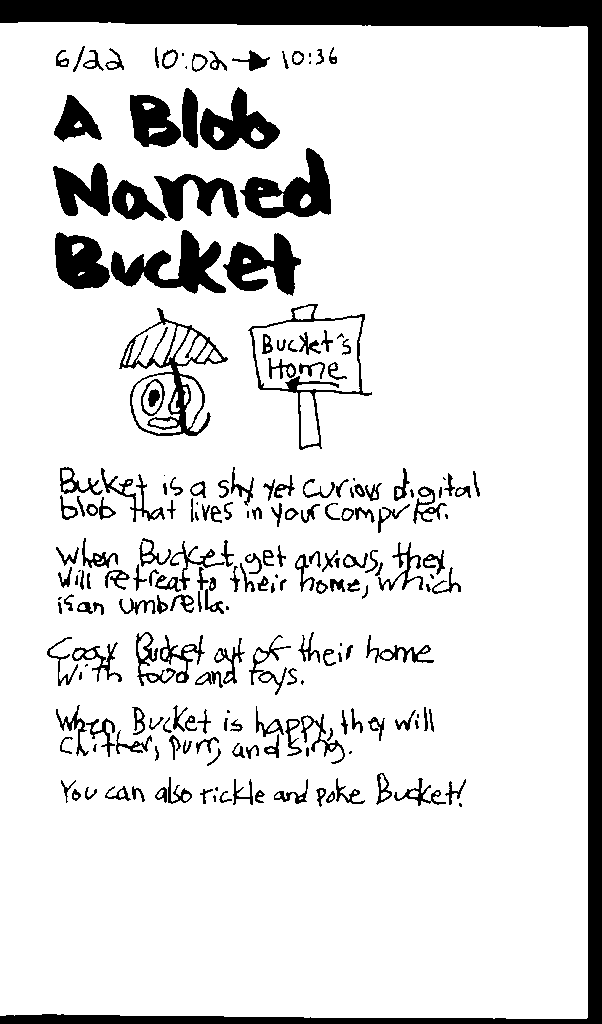 6/22 10:02→10:36
A Blob
Named
Bucket
Bucket's
Home
Bucket is a shy yet curious digital
blob that lives in your computer.
When Bucket get anxious, they
will retreat to their home, which
is an umbrella.
Coax Bucket out of their home
with food and toys.
When Bucket is happy, they will
chitter, purr, and sing.
You can also tickle and poke Bucket!